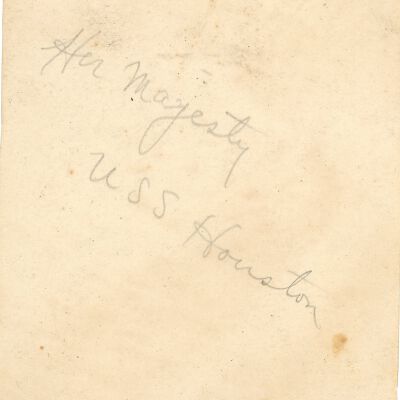 Her Majesty
USS Houston